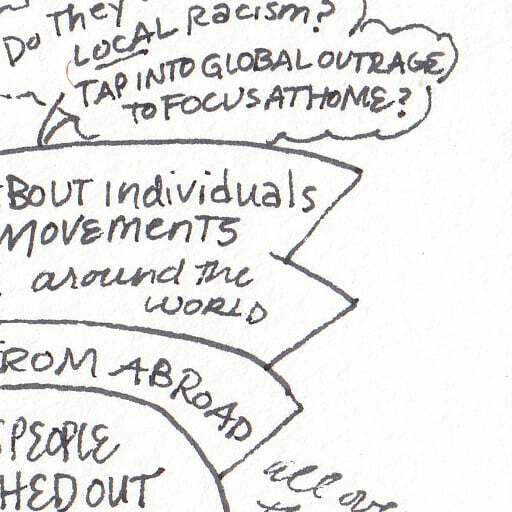 Do They
LOCAL Racism?
TAP INTO GLOBAL OUTRAGE
TO FOCUS AT HOME?
BOUT Individuals
MOVEMENTS
around The
WORLD
ROM ABROAD
PEOPLE
HED OUT
all ov